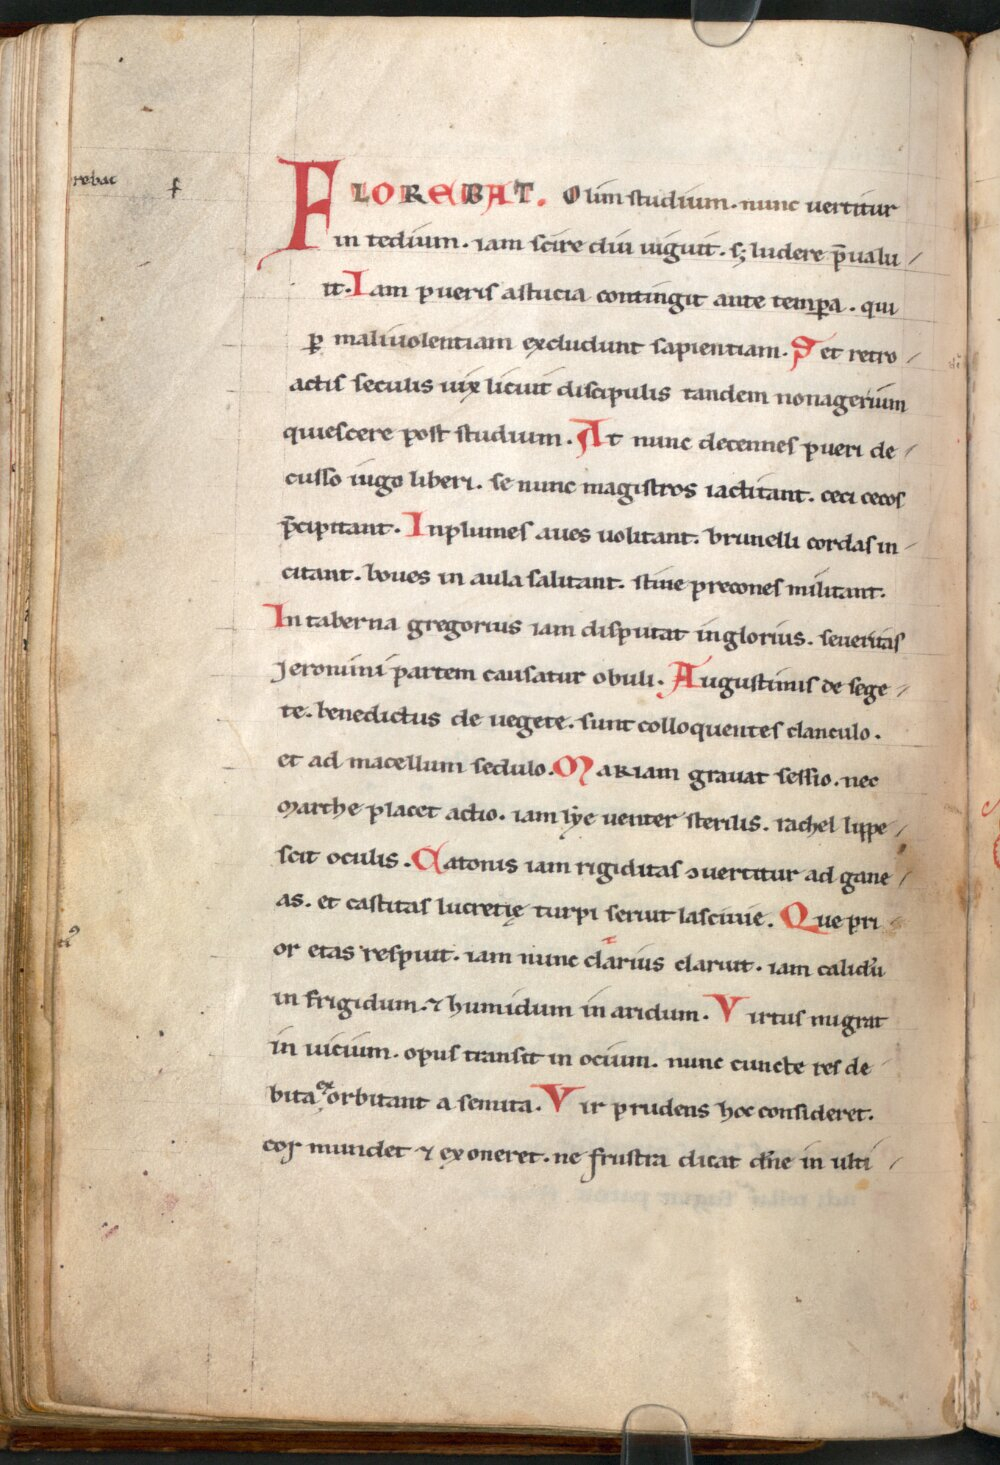 rebat f
FLOREBAT. Olim studium. nunc uertitur
in tedium. iam scire diu uiguit. sꝫ ludere p̄ualu/
it. Iam pueris astucia contingit ante temꝑa. qui
ꝑ maliuolentiam excludunt sapientiam. S et retro/
actis seculis uix licuit discipulis tandem nonagerium
quiescere post studium. At nunc decennes pueri de/
cusso iugo liberi. se nunc magistros iactitant. ceci cecos
p̄cipitant. Inplumes aues uolitant. brunelli cordas in/
citant. boues in aula salitant. stiue precones militant.
In taberna gregorius iam disputat inglorius. seueritas
Jeronimi partem causatur obuli. Augustinus de sege/
te. benedictus de uegete. sunt colloquentes clanculo.
et ad macellum sedulo. Mariam grauat sessio. nec
marthe placet actio. iam lye uenter sterilis. rachel lippe/
scit oculis. Catonis iam rigiditas ɔuertitur ad gane/
as. et castitas lucretię turpi seruit lasciuie. Que pri
or etas respuit. iam nunc clarius claruit. iam calidū
in frigidum. ⁊ humidum in aridum. Virtus migrat
in uicium. opus transit in ocium. nunc cuncte res de
bita ex orbitant a semita. Vir prudens hoc consideret.
cor mundet ⁊ exoneret. ne frustra dicat dn̄e in ulti/